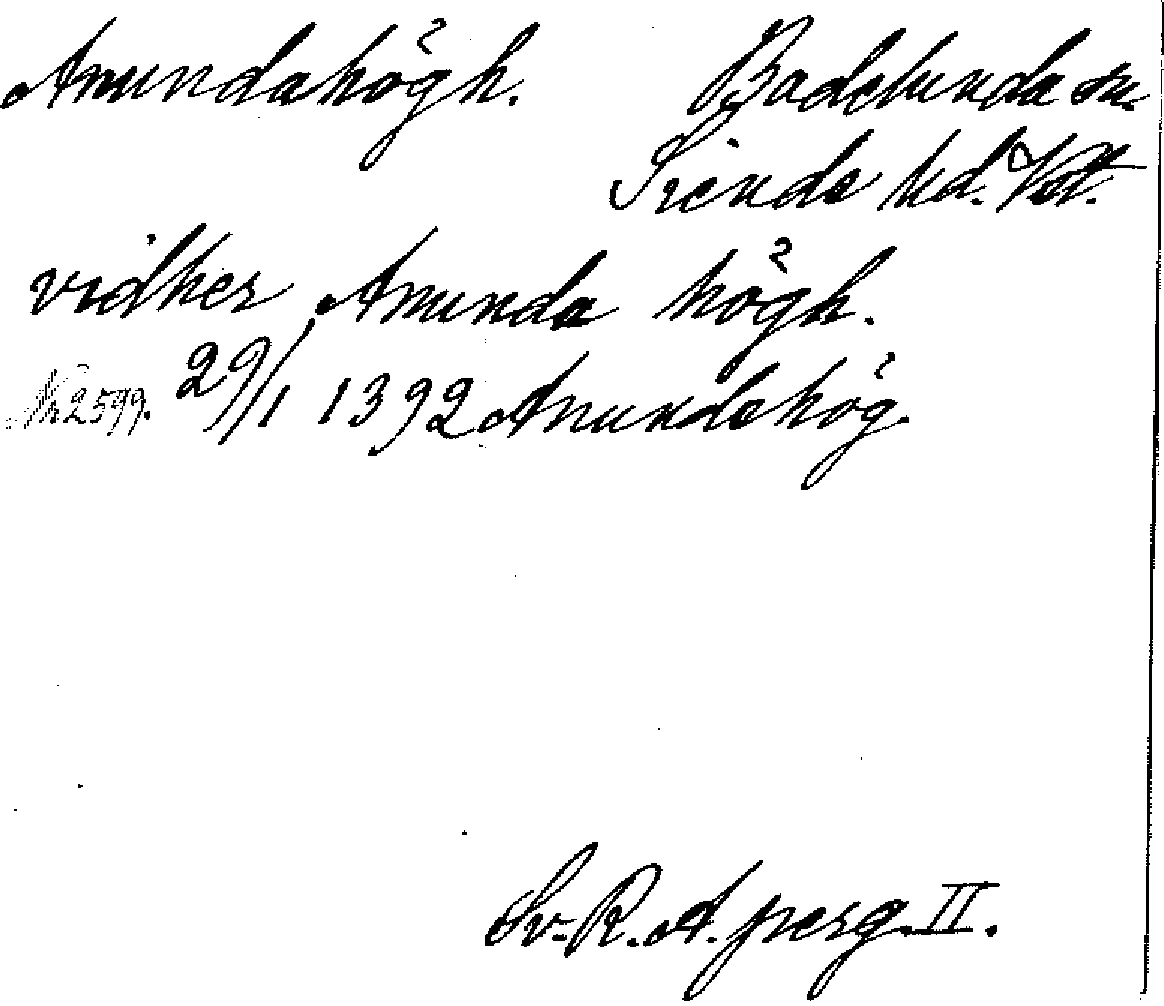 Anundahögh. Badelunda sn.
Siende hd. Vstl.
vidher Anunda högh.
No 2599. 29/1 1392 Anundahög.
Sv. R. A. perg. II.